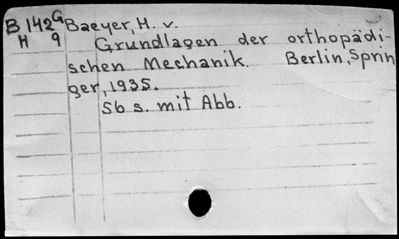 B 142G Baeyer, H. v.
H 9 Grundlagen der orthopädi-
schen Mechanik. Berlin, Sprin
ger, 1935.
56 s. mit Abb.